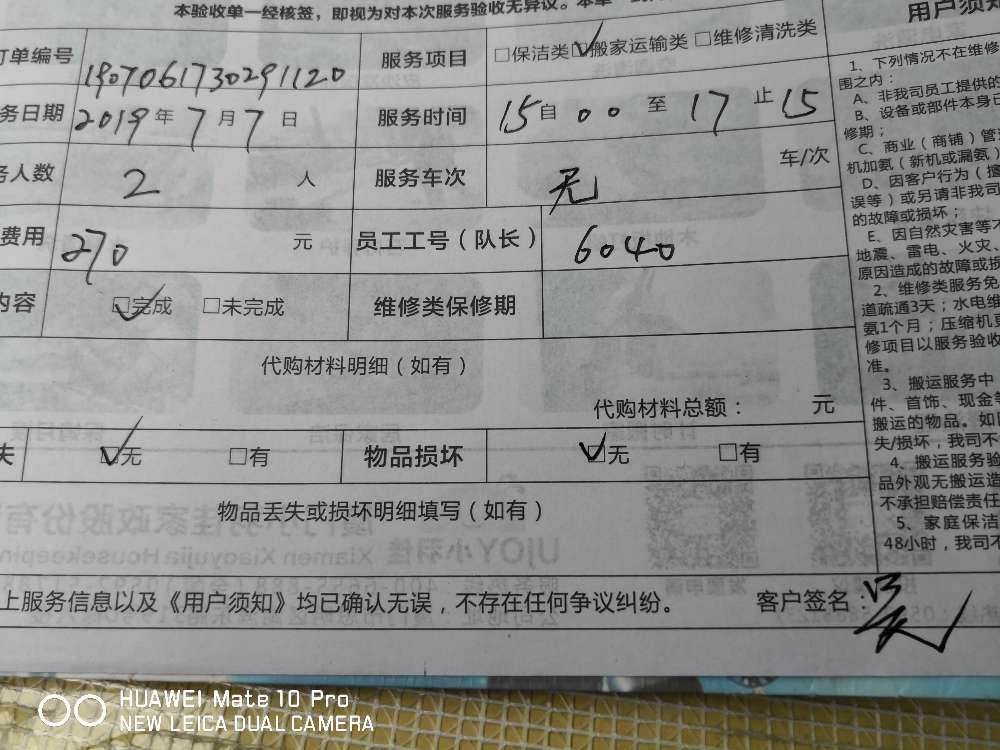 本验收单一经核签，即视为对本次服务验收无异议。本单一
订单编号 1907061730291120 服务项目 □保洁类 ☑搬家运输类 □维修清洗类
务日期 2019年7月7日 服务时间 15自00至17止15
务人数 2 人 服务车次 无 车/次
费用 270 元 员工工号（队长） 6040
内容 ☑完成 □未完成 维修类保修期
代购材料明细（如有）
代购材料总额： 元
失 ☑无 □有 物品损坏 ☑无 □有
物品丢失或损坏明细填写（如有）
上服务信息以及《用户须知》均已确认无误，不存在任何争议纠纷。 客户签名
用户须知
1、下列情况不在维修
围之内：
A、非我司员工提供的
B、设备或部件本身已
修期；
C、商业（商铺）管
机加氨（新机或漏氨）
D、因客户行为（擅
误等）或另请非我司
的故障或损坏；
E、因自然灾害等不
地震、雷电、火灾、
原因造成的故障或损
2、维修类服务免
道疏通3天；水电维
氨1个月；压缩机
修项目以服务验收
准。
3、搬运服务中
件、首饰、现金等
搬运的物品。如
失/损坏，我司不
4、搬运服务验
品外观无搬运造
不承担赔偿责任
5、家庭保洁
48小时，我司不
HUAWEI Mate 10 Pro
NEW LEICA DUAL CAMERA